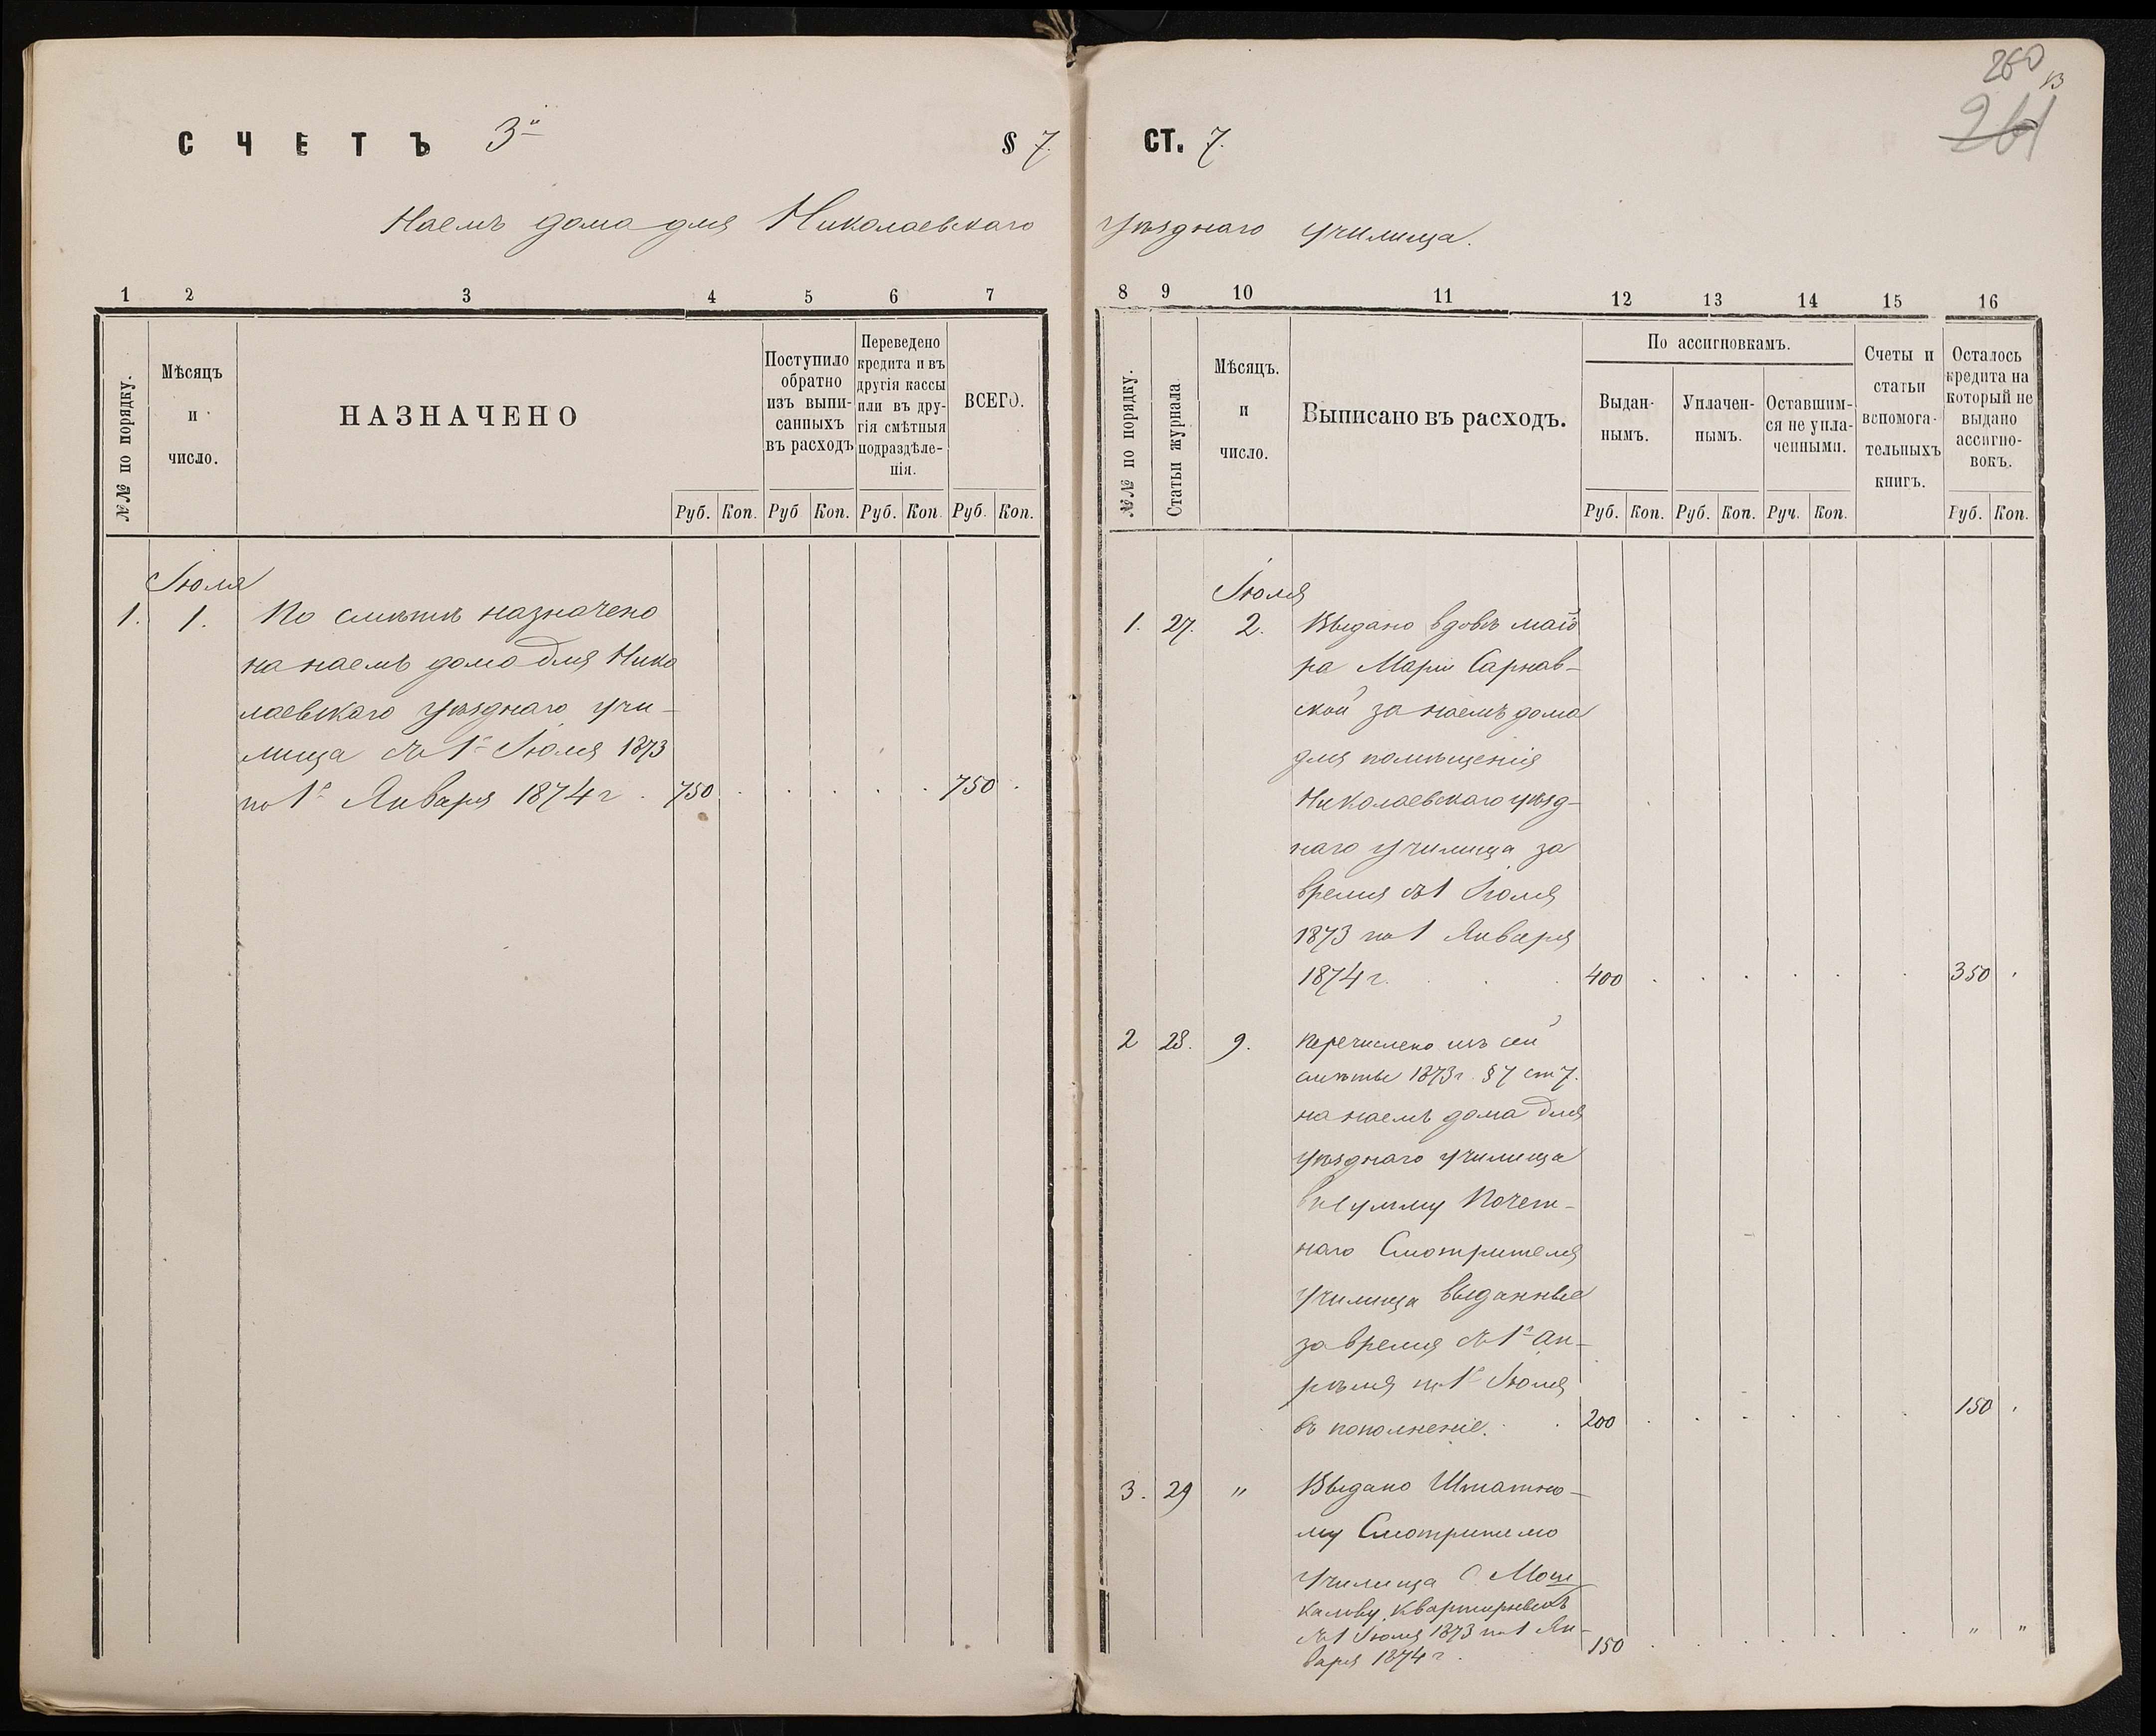 260
13
261
СЧЕТЪ 3й § 7. СТ. 7.
Наемъ дома для Николаевскаго Уѣзднаго Училища.
1 2 3 4 5 6 7
№№ по порядку.
Мѣсяцъ
и
число.
НАЗНАЧЕНО
Поступило
обратно
изъ выпи-
санныхъ
въ расходъ
Переведено
кредита и въ
другія кассы
или въ дру-
гія смѣтныя
подраздѣле-
нія.
ВСЕГО.
Руб. Коп. Руб Коп. Руб. Коп. Руб. Коп.
Іюля
1. 1. По смѣтѣ назначено
на наемъ дома для Нико
лаевскаго Уѣзднаго Учи-
лища съ 1го Іюля 1873
по 1е Января 1874 г. 750 . . . . . 750 .
8 9 10 11 12 13 14 15 16
№№ по порядку.
Статьи журнала
Мѣсяцъ.
и
число.
Выписано въ расходъ.
По ассигновкамъ.
Выдан-
нымъ.
Уплачен-
нымъ.
Оставшим-
ся не упла-
ченными.
Счеты и
статьи
вспомога-
тельныхъ
книгъ.
Осталось
кредита на
который не
выдано
ассигно-
вокъ.
Руб. Коп. Руб. Коп. Руч. Коп. Руб. Коп.
Іюля
1. 27. 2. Выдано вдовѣ маіо
ра Маріи Сарнав-
ской за наемъ дома
для помѣщенія
Николаевскаго уѣзд-
наго училища за
время съ 1 Іюля
1873 по 1 Января
1874 г. . . . 400 . . . . . . 350 .
2 28. 9. Перечислено изъ сей
смѣты 1873 г. § 7 ст 7.
на наемъ дома для
Уѣзднаго училища
въ сумму Почет-
наго Смотрителя
Училища выданные
за время съ 1го Ап-
рѣля по 1е Іюля
въ пополненіе. . . 200 . . . . . . 150 .
3. 29 " Выдано Штатно-
му Смотрителю
Училища С. Мош
калову квартирныхъ
съ 1 Іюля 1873 по 1 Ян-
варя 1874 г. 150 . . . . . . " "